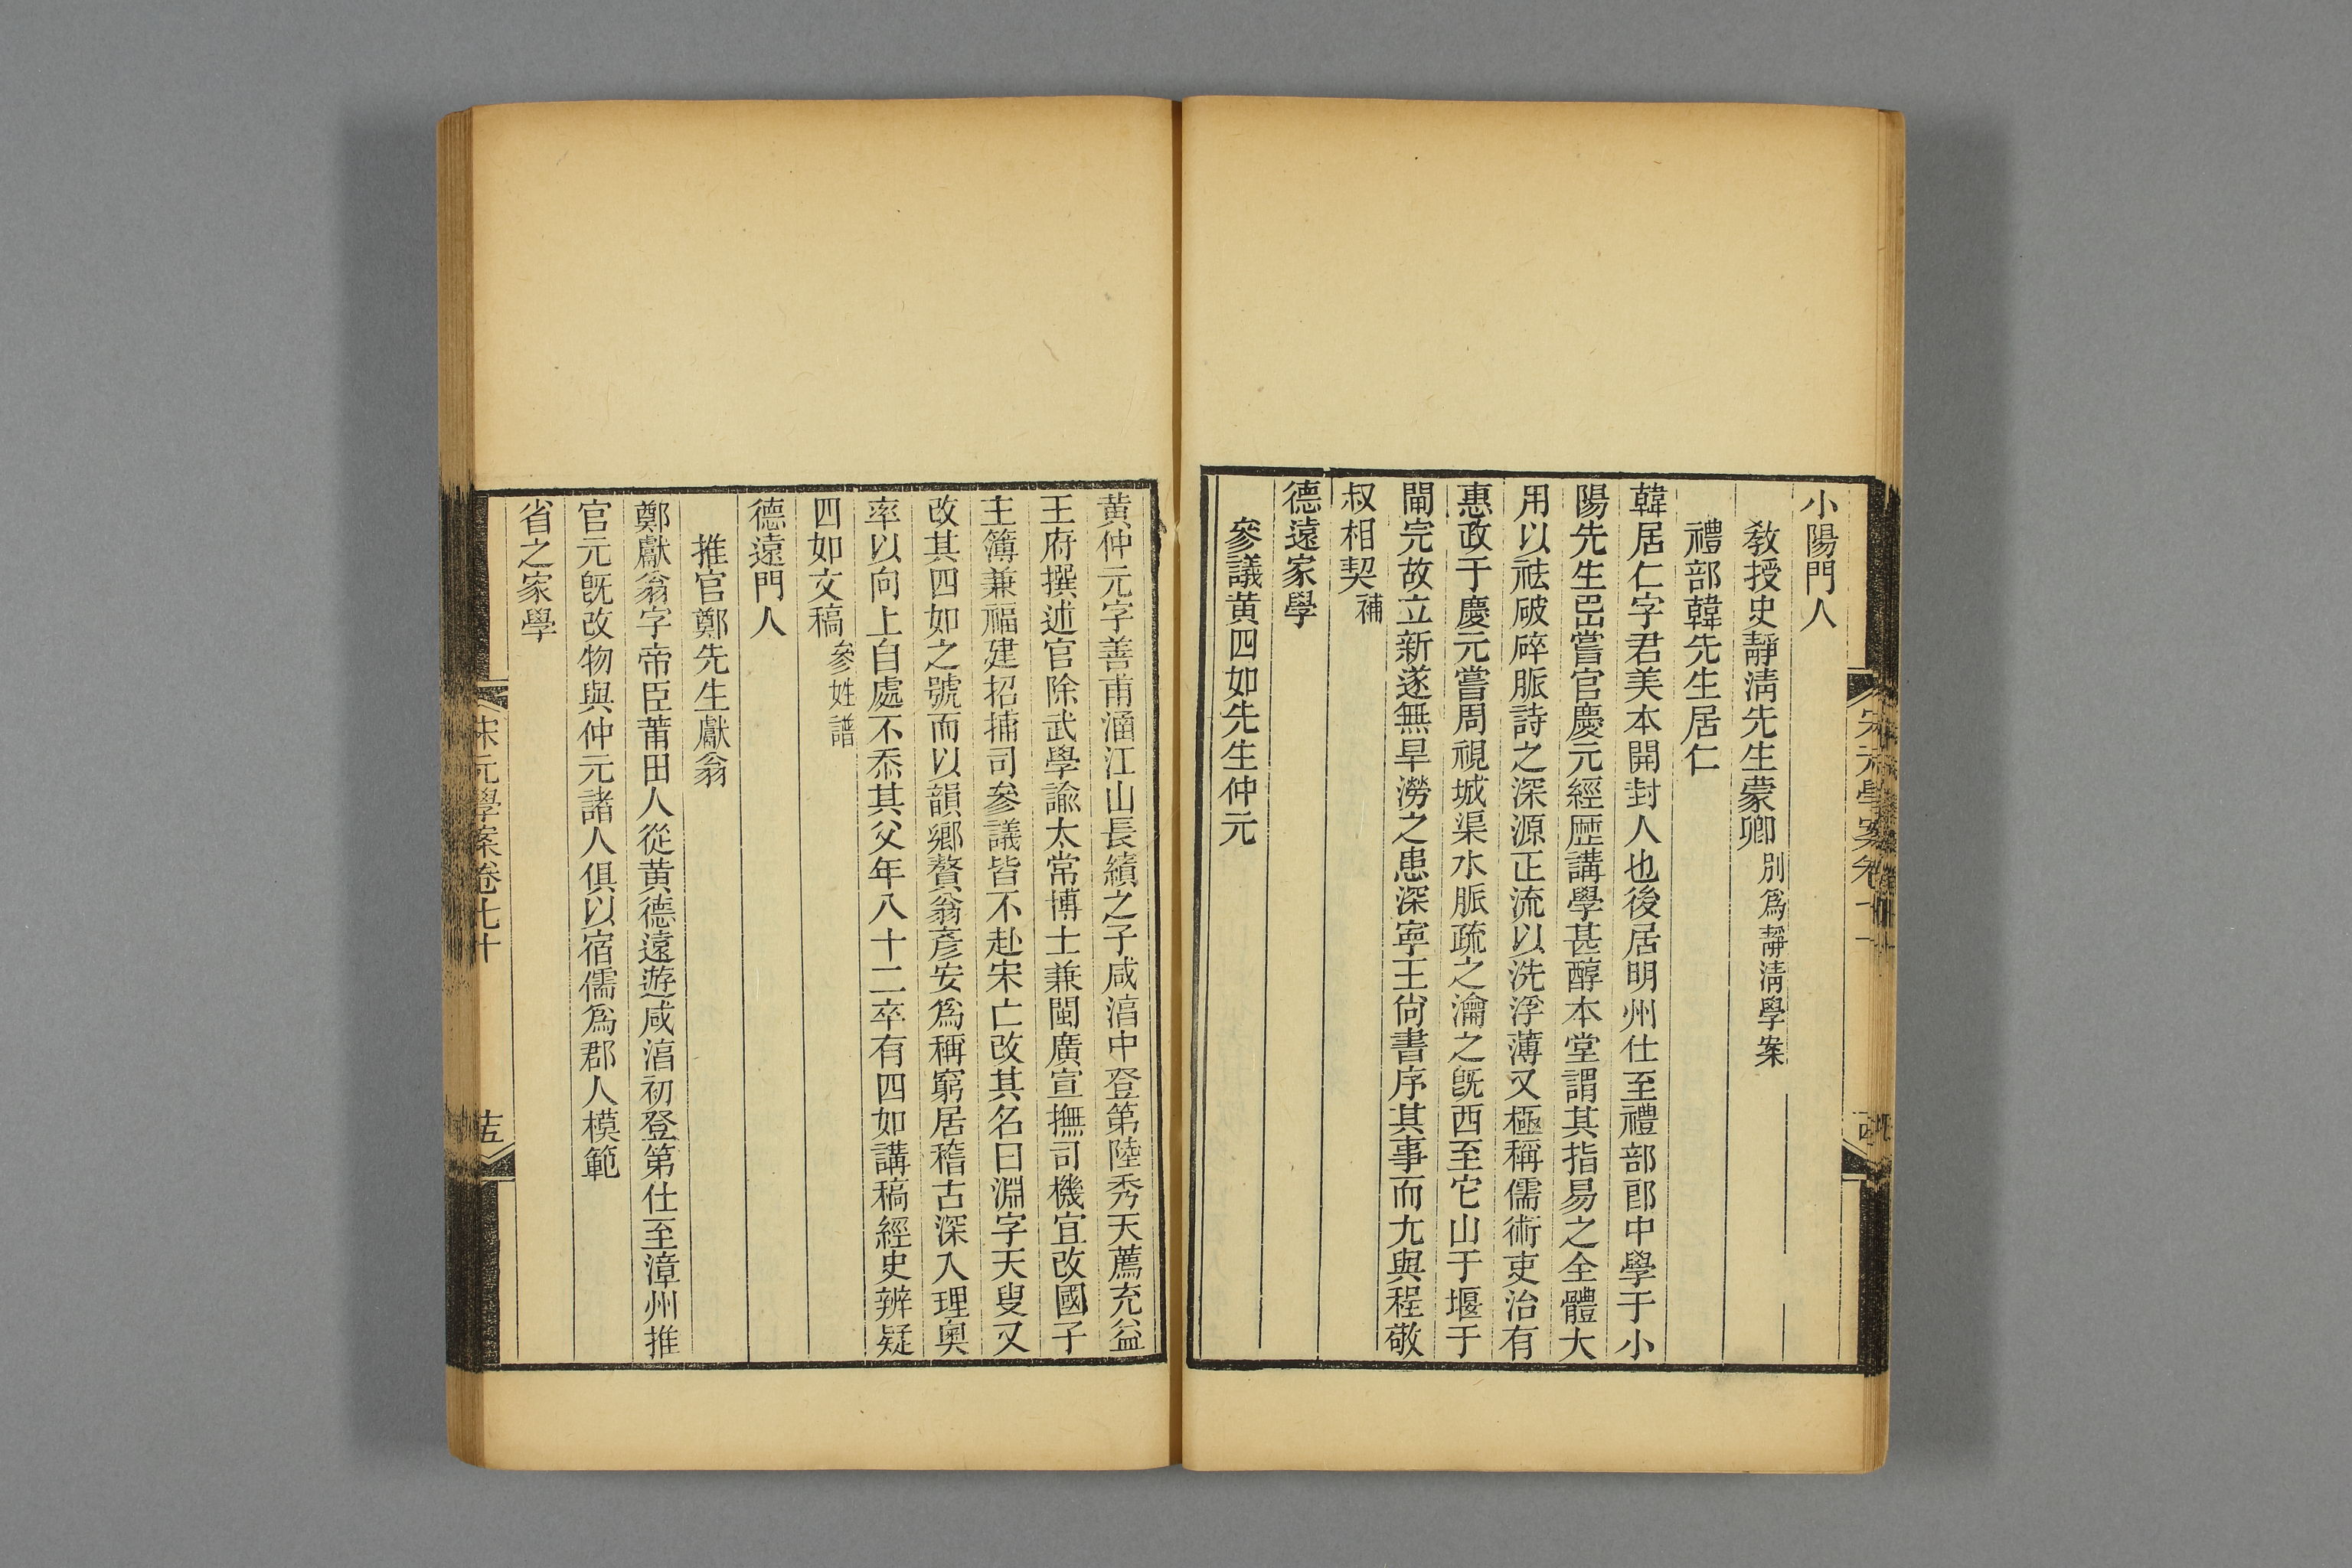 小陽門人
教授史靜淸先生蒙卿別爲靜淸學案
禮部韓先生居仁
韓居仁字君美本開封人也後居明州仕至禮部郎中學于小
陽先生嵒嘗官慶元經歷講學甚醇本堂謂其指易之全體大
用以祛破碎脈詩之深源正流以洗浮薄又極稱儒術吏治有
惠政于慶元嘗周視城渠水脈疏之瀹之旣西至它山于堰于
閘完故立新遂無旱澇之患深寧王尙書序其事而尢與程敬
叔相契補
德遠家學
參議黃四如先生仲元
黃仲元字善甫涵江山長績之子咸淳中登第陸秀夫薦充益
王府撰述官除武學諭太常博士兼閩廣宣撫司機宜改國子
主簿兼福建招捕司參議皆不赴宋亡改其名曰淵字天叟又
改其四如之號而以韻鄉贅翁彥安爲稱窮居稽古深入理奧
率以向上自處不忝其父年八十二卒有四如講稿經史辨疑
四如文稿參姓譜
德遠門人
推官鄭先生獻翁
鄭獻翁字帝臣莆田人從黃德遠遊咸淳初登第仕至漳州推
官元旣改物與仲元諸人俱以宿儒爲郡人模範
省之家學
宋元學案卷七十